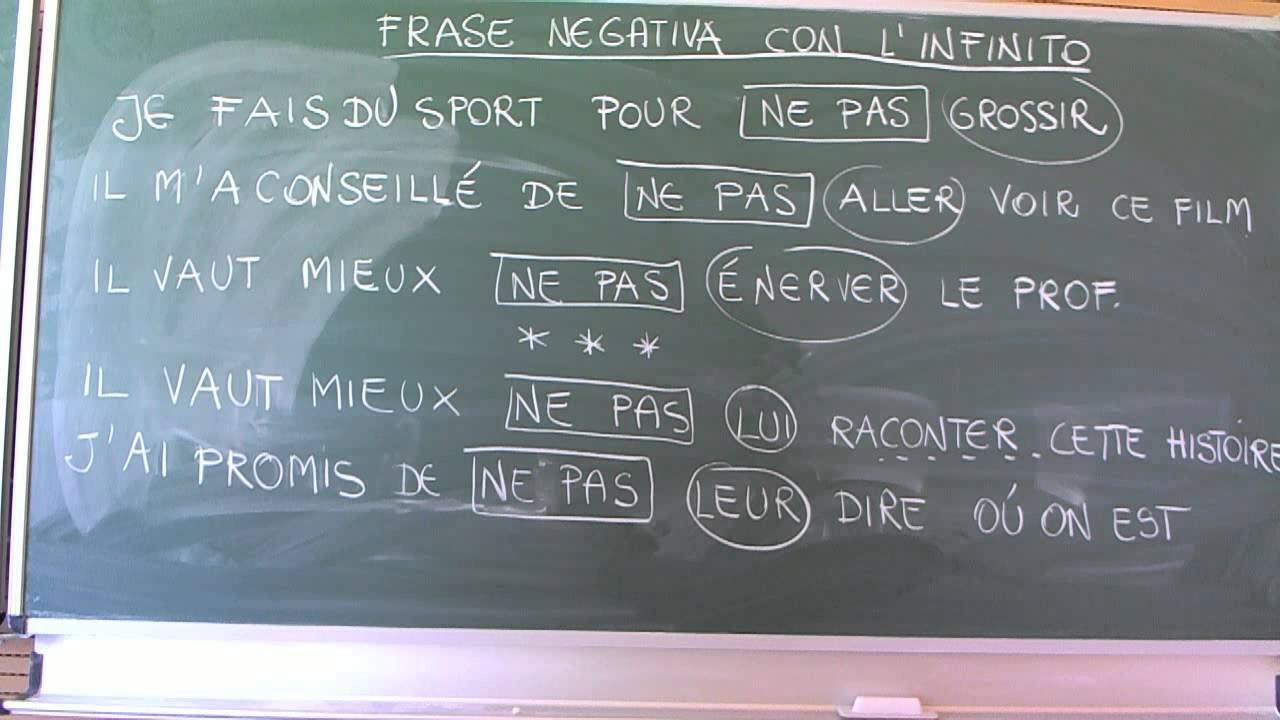 FRASE NEGATIVA CON L'INFINITO
JE FAIS DU SPORT POUR NE PAS GROSSIR
IL M'A CONSEILLÉ DE NE PAS ALLER VOIR CE FILM
IL VAUT MIEUX NE PAS ÉNERVER LE PROF.
* * *
IL VAUT MIEUX NE PAS LUI RACONTER CETTE HISTOIRE
J'AI PROMIS DE NE PAS LEUR DIRE OÚ ON EST